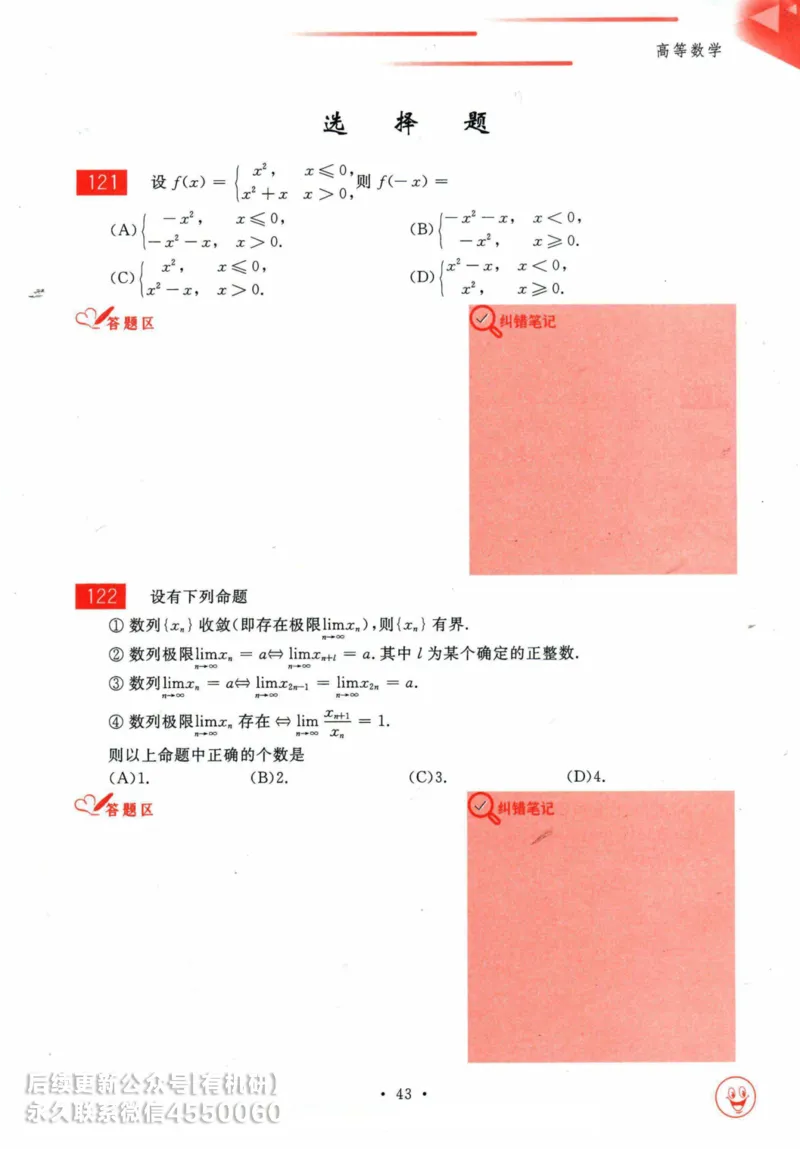 高等数学
选 择 题
121 设 f(x) = { x², x ≤ 0, x² + x x > 0, 则 f(− x) =
(A) { − x², x ≤ 0, − x² − x, x > 0. (B) { − x² − x, x < 0, − x², x ≥ 0.
(C) { x², x ≤ 0, x² − x, x > 0. (D) { x² − x, x < 0, x², x ≥ 0.
答题区 纠错笔记
122 设有下列命题
① 数列{xₙ} 收敛(即存在极限lim_{n→∞} xₙ),则{xₙ} 有界.
② 数列极限lim_{n→∞} xₙ = a ⇔ lim_{n→∞} xₙ₊ₗ = a. 其中 l 为某个确定的正整数.
③ 数列lim_{n→∞} xₙ = a ⇔ lim_{n→∞} x₂ₙ₋₁ = lim_{n→∞} x₂ₙ = a.
④ 数列极限lim_{n→∞} xₙ 存在 ⇔ lim_{n→∞} xₙ₊₁/xₙ = 1.
则以上命题中正确的个数是
(A)1. (B)2. (C)3. (D)4.
答题区 纠错笔记
后续更新公众号[有机研]
永久联系微信4550060
• 43 •